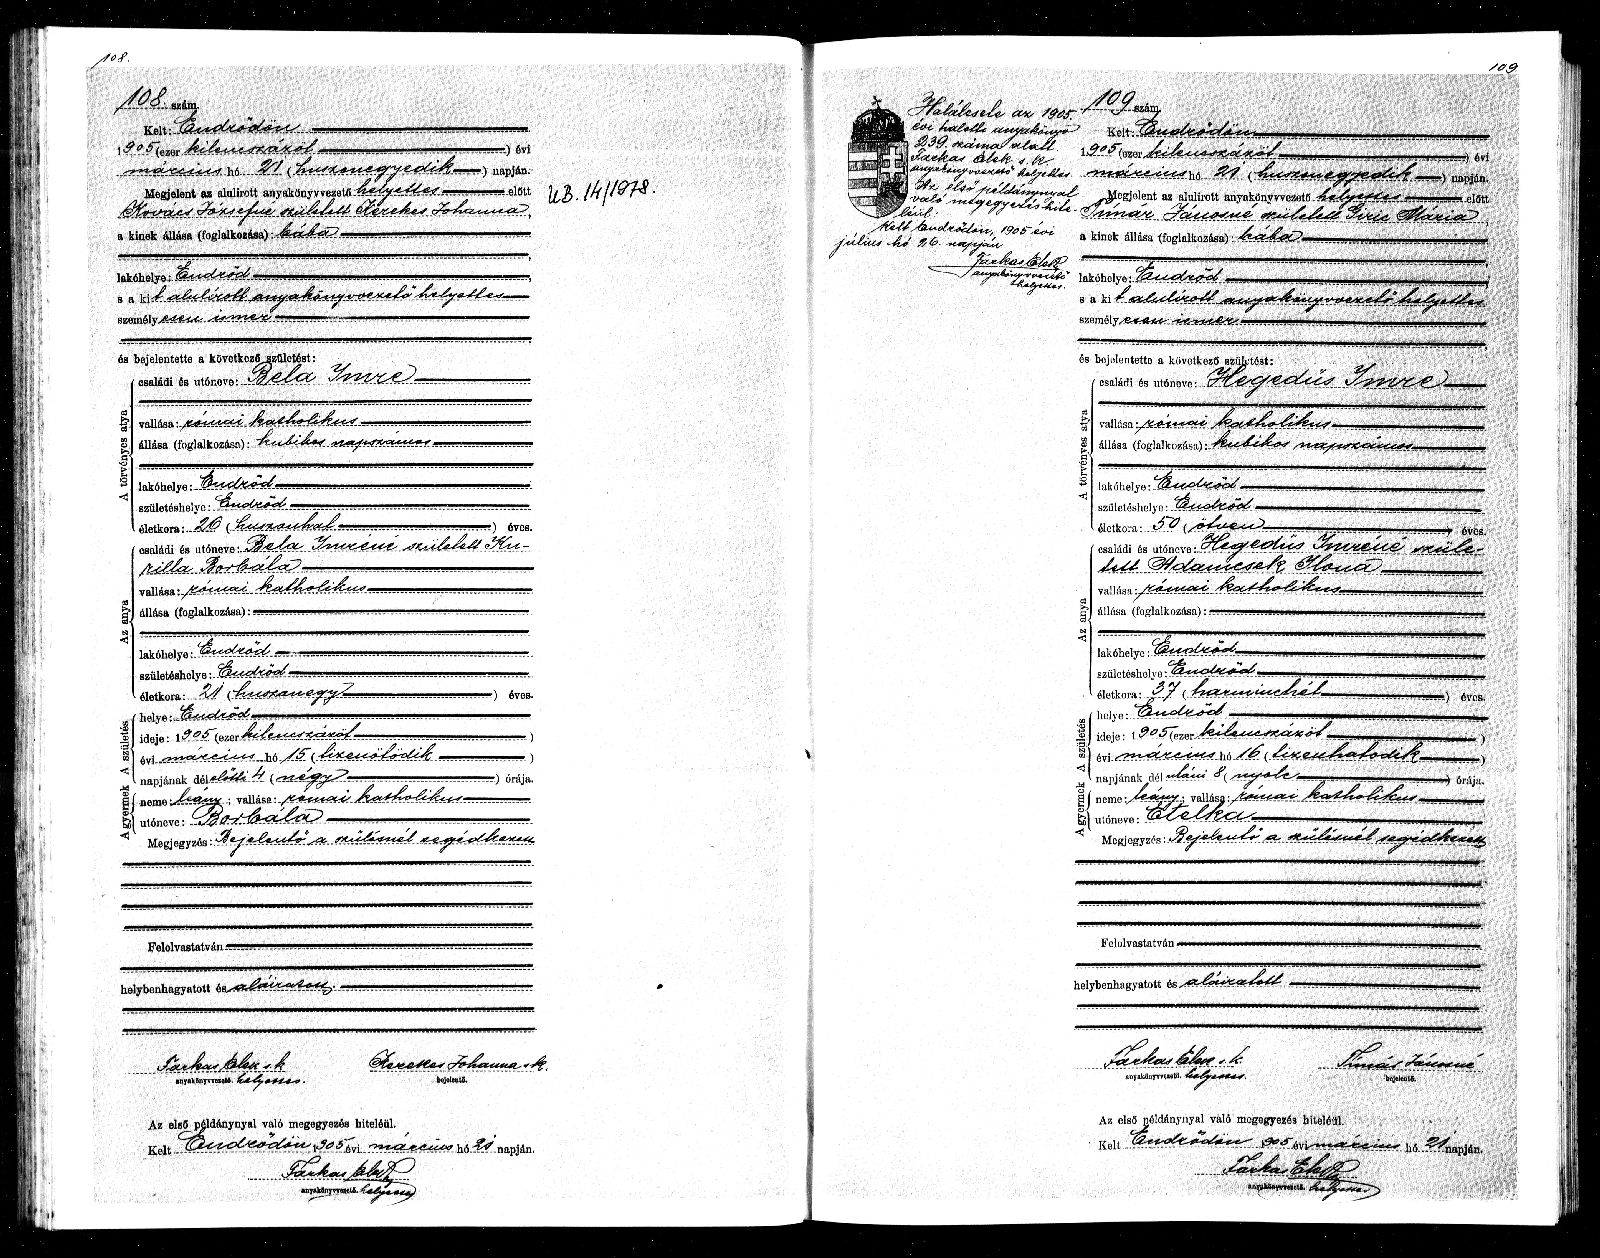 108.
108. szám.
Kelt: Endrődön
1905 (ezer kilencszázöt) évi
március hó 21 (huszonegyedik) napján.
Megjelent az alulirott anyakönyvvezető helyettes előtt
Kovács Józsefné született Kerekes Johanna,
a kinek állása (foglalkozása): bába
lakóhelye: Endrőd
s a kit alulirott anyakönyvvezető helyettes
személyesen ismer
és bejelentette a következő születést:
A törvényes atya
családi és utóneve: Bela Imre
vallása: római katholikus
állása (foglalkozása): kubikos napszámos
lakóhelye: Endrőd
születéshelye: Endrőd
életkora: 26 (huszonhat) éves.
Az anya
családi és utóneve: Bela Imréné született Ku-
rilla Borbála
vallása: római katholikus
állása (foglalkozása):
lakóhelye: Endrőd
születéshelye: Endrőd
életkora: 21 (huszonegy) éves.
A születés
helye: Endrőd
ideje: 1905 (ezer kilencszázöt)
évi március hó 15 (tizenötödik)
napjának dél előtti 4 (négy) órája.
A gyermek
neme: leány; vallása: római katholikus
utóneve: Borbála
Megjegyzés: Bejelentő a szülésnél segédkezett
Felolvastatván
helybenhagyatott és aláiratott.
Farkas Elek s.k. Kerekes Johanna s.k.
anyakönyvvezető. helyettes. bejelentő.
Az első példánynyal való megegyezés hiteléül.
Kelt Endrődön, 1905 évi március hó 21 napján.
Farkas Elek
anyakönyvvezető. helyettes
UB. 14/1978.
109
Halálesete az 1905.
évi halotti anyakönyv
239. száma alatt
Farkas Elek s. k.
anyakönyvvezető helyettes
Az első példánynyal
való megegyezés hite-
léül.
Kelt Endrődön, 1905 évi
július hó 26. napján
Farkas Elek
anyakönyvvezető
helyettes.
109 szám.
Kelt: Endrődön
1905 (ezer kilencszázöt) évi
március hó 21 (huszonegyedik) napján.
Megjelent az alulirott anyakönyvvezető helyettes előtt
Timár Jánosné született Giris Mária
a kinek állása (foglalkozása): bába
lakóhelye: Endrőd
s a kit alulirott anyakönyvvezető helyettes
személyesen ismer
és bejelentette a következő születést:
A törvényes atya
családi és utóneve: Hegedüs Imre
vallása: római katholikus
állása (foglalkozása): kubikos napszámos
lakóhelye: Endrőd
születéshelye: Endrőd
életkora: 50 (ötven) éves.
Az anya
családi és utóneve: Hegedüs Imréné szüle-
tett Adamcsek Ilona
vallása: római katholikus
állása (foglalkozása):
lakóhelye: Endrőd
születéshelye: Endrőd
életkora: 37 (harminchét) éves.
A születés
helye: Endrőd
ideje: 1905 (ezer kilencszázöt)
évi március hó 16 (tizenhatodik)
napjának dél utáni 8 (nyolc) órája.
A gyermek
neme: leány; vallása: római katholikus
utóneve: Etelka
Megjegyzés: Bejelentő a szülésnél segédkezett
Felolvastatván
helybenhagyatott és aláiratott
Farkas Elek s.k. Timár Jánosné
anyakönyvvezető. helyettes. bejelentő.
Az első példánynyal való megegyezés hiteléül.
Kelt Endrődön 1905 évi március hó 21 napján.
Farkas Elek
anyakönyvvezető. helyettes